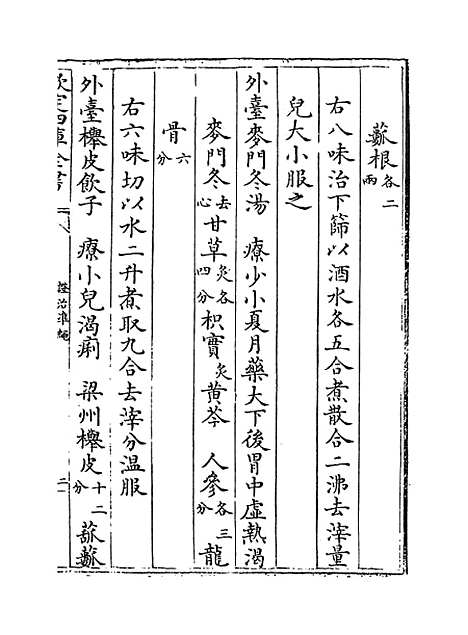 蓏根各二兩
右八味治下篩以酒水各五合煮散合二沸去滓量
兒大小服之
外臺麥門冬湯　療少小夏月藥大下後胃中虛熱渴
麥門冬去心 甘草炙各四分 枳實炙 黄芩　人參各三分 龍
骨六分
右六味切以水二升煮取九合去滓分温服
外臺櫸皮飲子　療小兒渴痢　梁州櫸皮十二分 菰蓏
欽定四庫全書
證治準繩